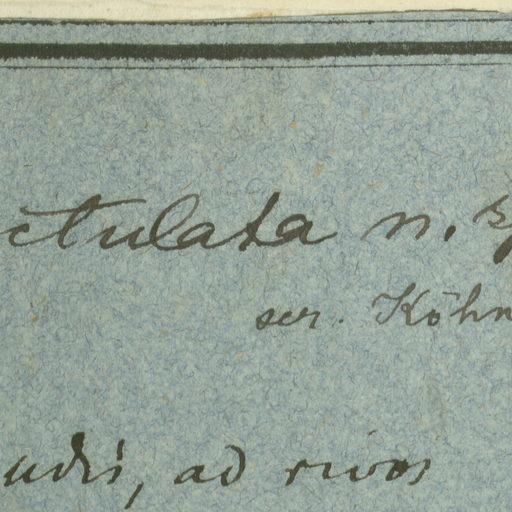 ctulata n. sp
scr. Köhn
udis, ad rivos